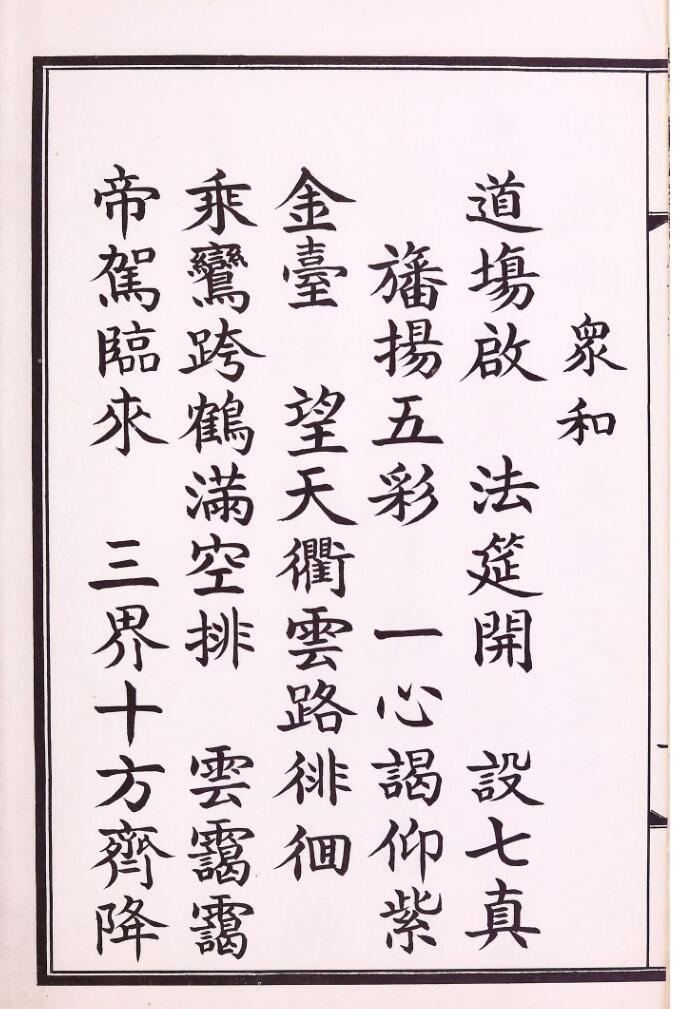 眾和
道場啟　法筵開　設七真
旛揚五彩　一心謁仰紫
金臺　望天衢雲路徘徊
乘鸞跨鶴滿空排　雲靄靄
帝駕臨來　三界十方齊降